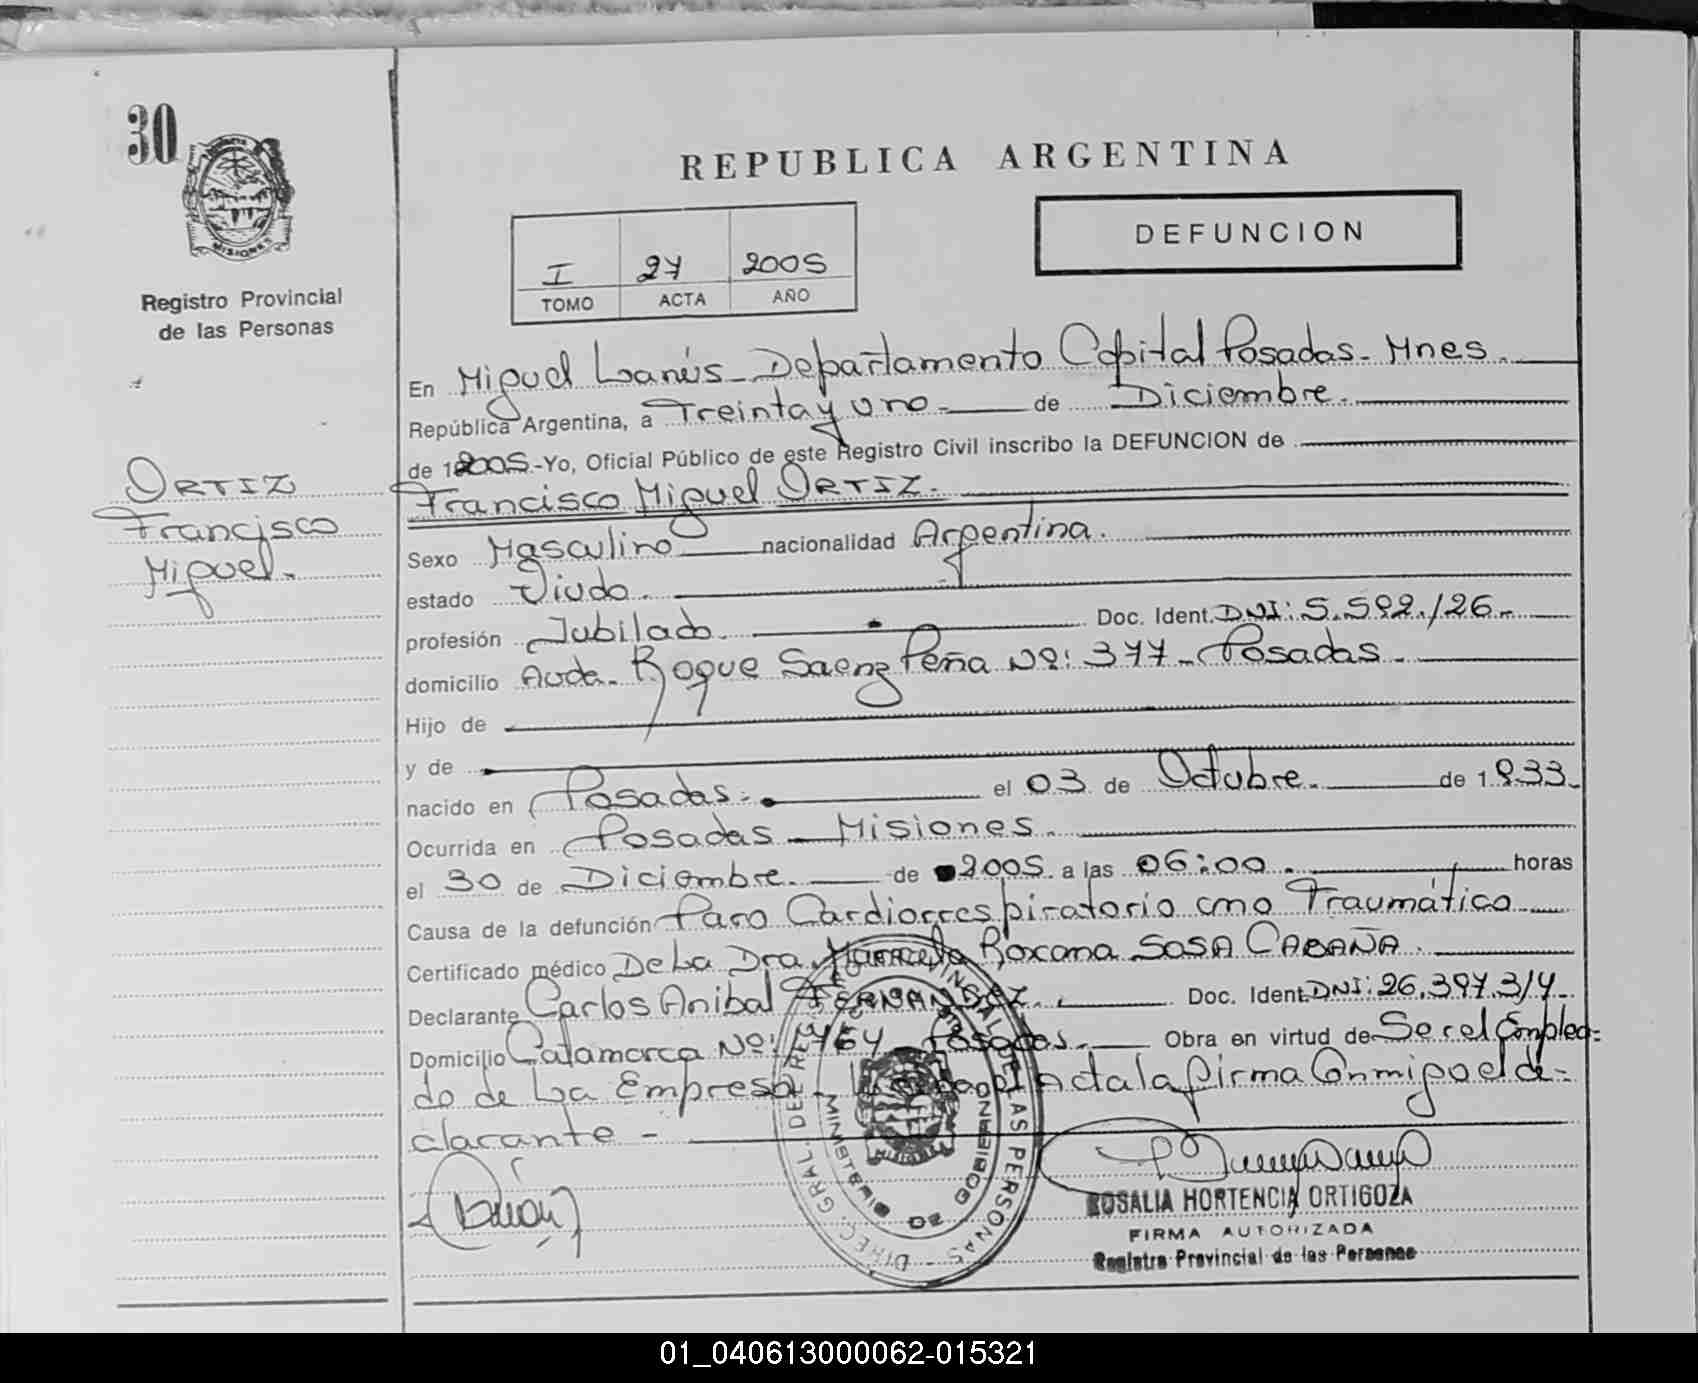 30
MISIONES
Registro Provincial
de las Personas
ORTIZ
Francisco
Miguel.
REPUBLICA ARGENTINA
DEFUNCION
I 27 2005
TOMO ACTA AÑO
En Miguel Lanús - Departamento Capital Posadas - Mnes.
República Argentina, a Treinta y uno - de Diciembre.
de 2005 - Yo, Oficial Público de este Registro Civil inscribo la DEFUNCION de
Francisco Miguel ORTIZ.
Sexo Masculino nacionalidad Argentina.
estado Viudo.
profesión Jubilado. Doc. Ident. DNI: 5.592.126.-
domicilio Avda. Roque Saenz Peña Nº: 377 - Posadas.
Hijo de
y de
nacido en Posadas. el 03 de Octubre. de 1.933.
Ocurrida en Posadas - Misiones.
el 30 de Diciembre. de 2005 a las 06:00. horas
Causa de la defunción Paro Cardiorrespiratorio no Traumático
Certificado médico De La Dra. Marcela Roxana SOSA CABAÑA.
Declarante Carlos Anibal FERNANDEZ. Doc. Ident. DNI: 26.397.314.
Domicilio Catamarca Nº: 1764 Posadas. Obra en virtud de Ser el Emplea=
do de La Empresa. Acta la firma Conmigo el de=
clarante -
DIREC. GRAL. DE REG. PROVINCIAL DE LAS PERSONAS
MINISTERIO DE GOBIERNO
ROSALIA HORTENCIA ORTIGOZA
FIRMA AUTORIZADA
Registro Provincial de las Personas
01_040613000062-015321